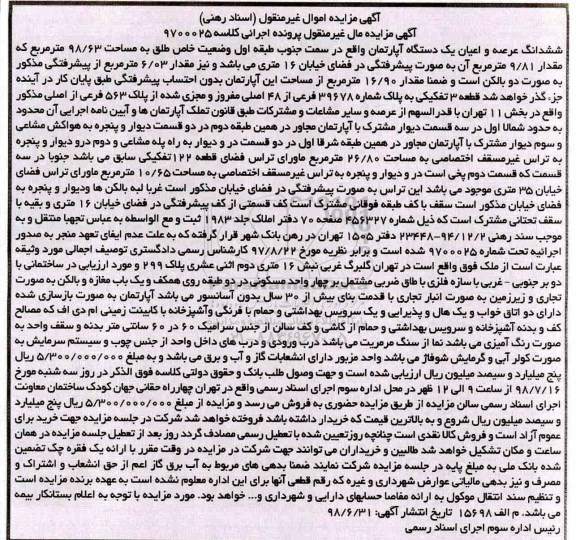 آگهی مزایده اموال غیرمنقول (اسناد رهنی)
آگهی مزایده مال غیرمنقول پرونده اجرائی کلاسه ۹۷۰۰۰۲۵
ششدانگ عرصه و اعیان یک دستگاه آپارتمان واقع در سمت جنوب طبقه اول وضعیت خاص طلق به مساحت ۹۸/۶۳ مترمربع که
مقدار ۹/۸۱ مترمربع آن به صورت پیشرفتگی در فضای خیابان ۱۶ متری می باشد و نیز مقدار ۶/۰۳ مترمربع از پیشرفتگی مذکور
به صورت دو بالکن است و ضمنا مقدار ۱۶/۹۰ مترمربع از مساحت این آپارتمان بدون احتساب پیشرفتگی طبق پایان کار در آینده
جزء گذر خواهد شد قطعه ۳ تفکیکی به پلاک شماره ۳۹۶۷۸ فرعی از ۴۸ اصلی مفروز و مجزی شده از پلاک ۵۶۳ فرعی از اصلی مذکور
واقع در بخش ۱۱ تهران با قدرالسهم از عرصه و سایر مشاعات و مشترکات طبق قانون تملک آپارتمان ها و آیین نامه اجرایی آن محدود
به حدود شمالا اول در سه قسمت دیوار مشترک با آپارتمان مجاور در همین طبقه دوم در دو قسمت دیوار و پنجره به هواکش مشاعی
و سوم دیوار مشترک با آپارتمان مجاور در همین طبقه شرقا اول در دو قسمت در و دیوار به راه پله مشاعی و دوم درو دیوار و پنجره
به تراس غیرمسقف اختصاصی به مساحت ۲۶/۸۰ مترمربع ماورای تراس فضای قطعه ۱۲۲ تفکیکی سابق می باشد جنوبا در سه
قسمت که قسمت دوم پخی است در و دیوار و پنجره به تراس غیرمسقف اختصاصی به مساحت ۱۰/۶۵ مترمربع ماورای تراس فضای
خیابان ۳۵ متری موجود می باشد این تراس به صورت پیشرفتگی در فضای خیابان مذکور است غربا لبه بالکن ها ودیوار و پنجره به
فضای خیابان مذکور است سقف با کف طبقه فوقانی مشترک است کف قسمتی از کف پیشرفتگی در فضای خیابان ۱۶ متری و بقیه با
سقف تحتانی مشترک است که ذیل شماره ۴۵۶۳۲۷ صفحه ۷۰ دفتر املاک جلد ۱۹۸۳ ثبت و مع الواسطه به عباس تجهبا منتقل و به
موجب سند رهنی ۹۴/۱۲/۲-۲۳۴۴۸ دفتر ۱۵۰۵ تهران در رهن بانک شهر قرار گرفته که به علت عدم ایفای تعهد منجر به صدور
اجرائیه تحت شماره ۹۷۰۰۰۲۵ شده است و برابر نظریه مورخ ۹۷/۸/۲۲ کارشناس رسمی دادگستری توصیف اجمالی مورد وثیقه
عبارت است از ملک فوق واقع است در تهران گلبرگ غربی نبش ۱۶ متری دوم اثنی عشری پلاک ۲۹۹ و مورد ارزیابی در ساختمانی با
دو بر جنوبی - غربی با سازه فلزی با طاق ضربی مشتمل بر چهار واحد مسکونی در دو طبقه روی همکف و یک باب مغازه و بالکن به صورت
تجاری و زیرزمین به صورت انبار تجاری با قدمت بنای بیش از ۳۰ سال بدون آسانسور می باشد آپارتمان به صورت بازسازی شده
دارای دو اتاق خواب و یک هال و پذیرایی و یک سرویس بهداشتی و حمام با فرنگی وآشپزخانه با کابینت زمینی ام دی اف که مصالح
کف و بدنه آشپزخانه و سرویس بهداشتی و حمام از کاشی و کف سالن از جنس سرامیک ۶۰ در ۶۰ سانتی متر بدنه و سقف واحد به
صورت رنگ آمیزی می باشد نما از سنگ مرمریت می باشد درب ورودی و درب های داخل واحد از جنس چوب و سیستم سرمایش به
صورت کولر آبی و گرمایش شوفاژ می باشد واحد مزبور دارای انشعابات گاز و آب و برق می باشد و به مبلغ ۵/۳۰۰/۰۰۰/۰۰۰ ریال
پنج میلیارد و سیصد میلیون ریال ارزیابی شده است و جهت وصول طلب بانک و حقوق دولتی کلاسه فوق الذکر در روز سه شنبه مورخ
۹۸/۷/۱۶ از ساعت ۹ الی ۱۲ ظهر در محل اداره سوم اجرای اسناد رسمی واقع در تهران چهارراه حقانی جهان کودک ساختمان معاونت
اجرای اسناد رسمی سالن مزایده از طریق مزایده حضوری به فروش می رسد و مزایده از مبلغ ۵/۳۰۰/۰۰۰/۰۰۰ ریال پنج میلیارد
و سیصد میلیون ریال شروع و به بالاترین قیمت که خریدار داشته باشد فروخته خواهد شد شرکت در جلسه مزایده جهت خرید برای
عموم آزاد است و فروش کالا نقدی است چنانچه روزتعیین شده با تعطیل رسمی مصادف گردد روز بعد از تعطیل جلسه مزایده در همان
ساعت و مکان تشکیل خواهد شد طالبین و خریداران می توانند جهت شرکت در مزایده در وقت مقرر با ارائه یک فقره چک تضمین
شده بانک ملی به مبلغ پایه در جلسه مزایده شرکت نمایند ضمنا بدهی های مربوط به آب برق گاز اعم از حق انشعاب و اشتراک و
مصرف و نیز بدهی مالیاتی عوارض شهرداری و غیره که رقم قطعی آنها برای این اداره معلوم نشده است به عهده برنده مزایده است
و تنظیم سند انتقال موکول به ارائه مفاصا حسابهای دارایی و شهرداری و... خواهد بود. مورد مزایده با توجه به اعلام بستانکار بیمه
می باشد. م الف ۱۵۶۹۸ تاریخ انتشار آگهی: ۹۸/۶/۳۱
رئیس اداره سوم اجرای اسناد رسمی